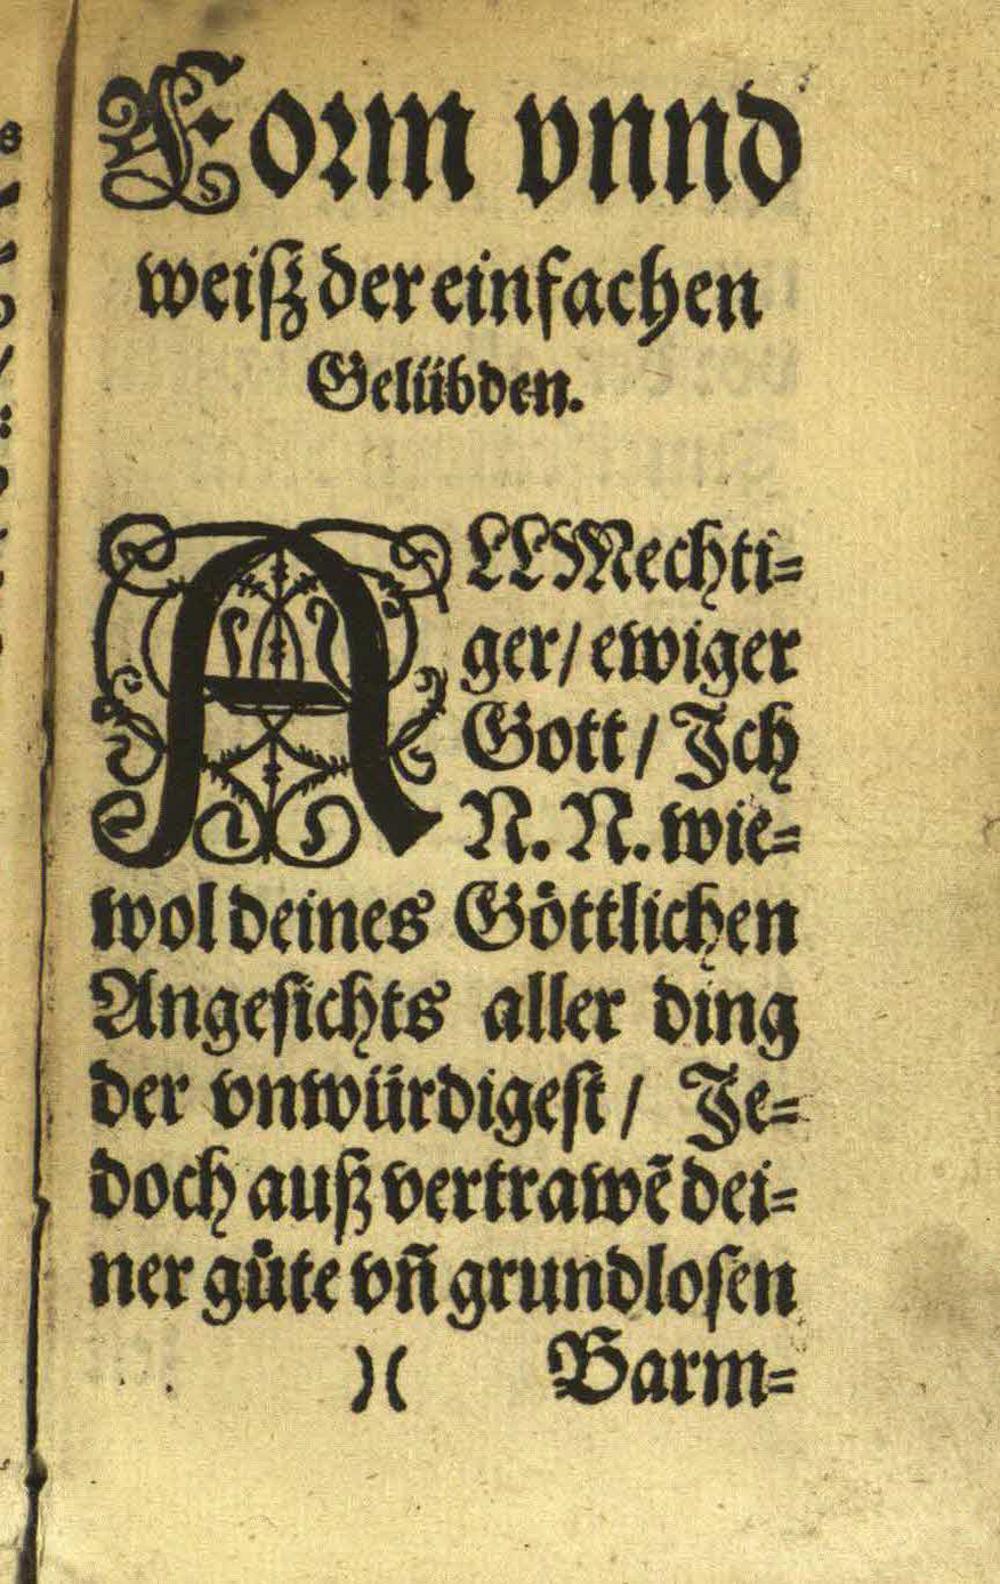 Form vnnd
weiſz der einfachen
Gelübden.
ALLMechti⸗
ger/ ewiger
Gott/ Ich
N. N. wie⸗
wol deines Göttlichen
Angeſichts aller ding
der vnwürdigeſt/ Je⸗
doch auſz vertrawẽ dei⸗
ner guͤte vñ grundloſen
)( Barm⸗